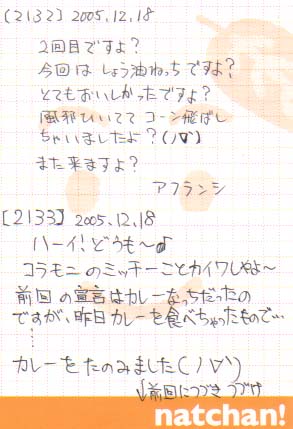 [2132] 2005.12.18
2回目ですよ?
今回はしょう油ねっちですよ?
とてもおいしかったですよ?
風邪ひいてて コーン飛ばし
ちゃいましたよ?(ノ∀`)
また来ますよ?
アフランシ
[2133] 2005.12.18
ハーイ!どうも〜♪
コラモニのミッチーことカイワレやよ〜
前回の宣言はカレーなっちだったの
ですが、昨日カレーを食べちゃったもので…
⋮
カレーをたのみました(ノ∀`)
↓前回につづき つづけ
natchan!